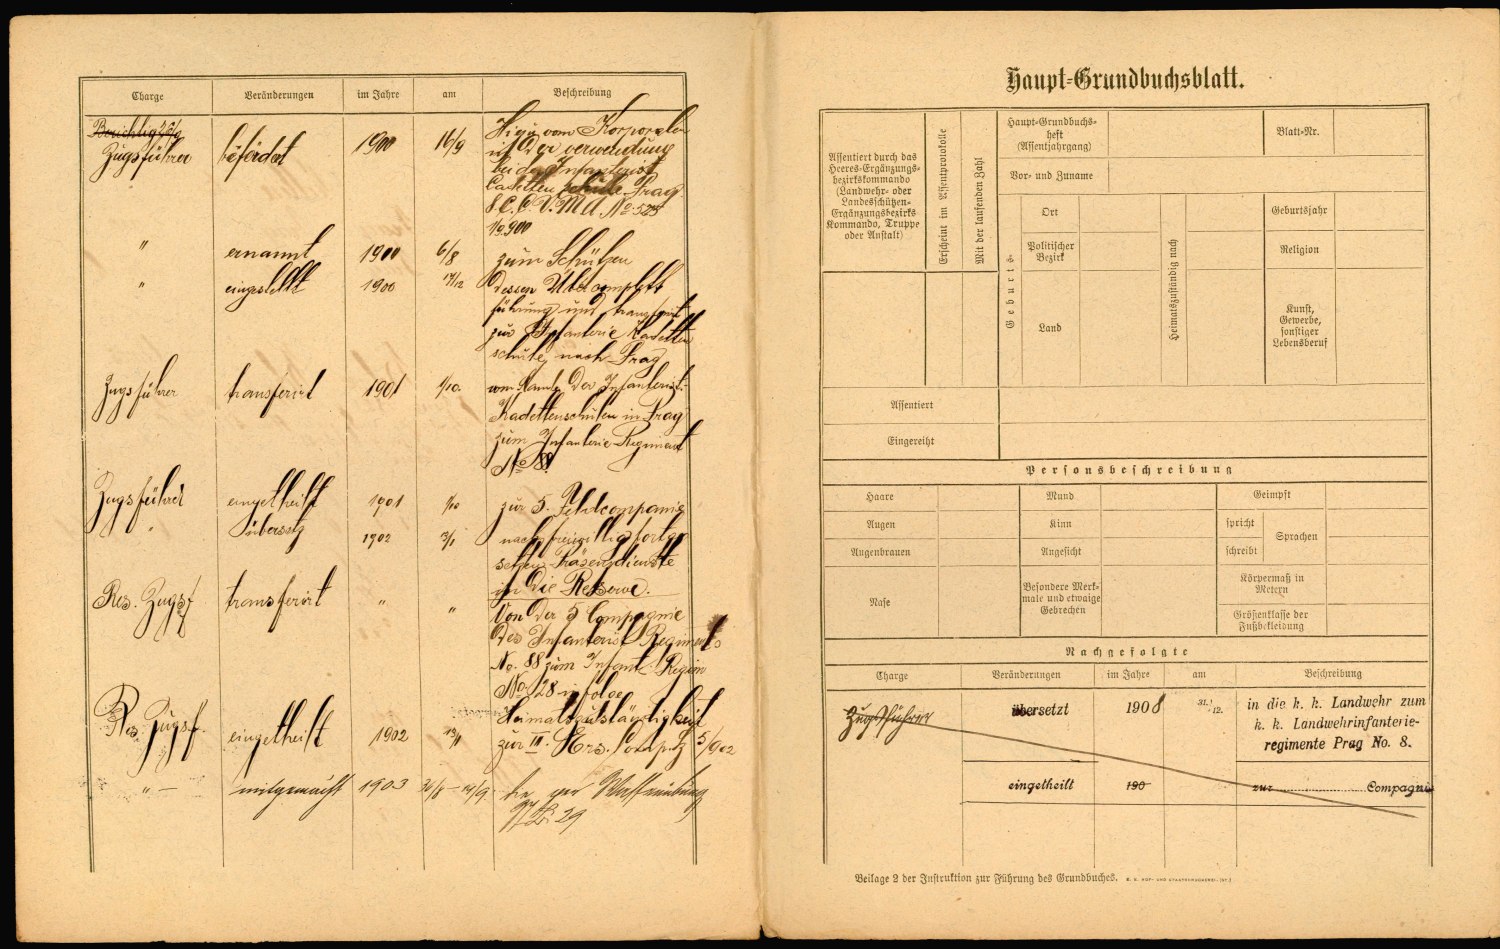 Charge Veränderungen im Jahre am Beschreibung
Zugsführer befördert 1900 16/9
vom Korporalen
in der verwendung
bei der Infanterist
Cadettenschule Prag
No 525
1/9.900
" ernannt 1900 6/8 zum Schützen
" eingestellt 1900 17/12 dessen
führung und transferirt
zur Infanterie Kadetten
schule nach Prag
Zugsführer transferirt 1901 1/10. der Infanterist.
Kadettenschulen in Prag
zum Infanterie Regiment
No 88
Zugsführer eingetheilt 1901 1/10 zur 5. Feldcompanie
" übersetzt 1902 3/1 nach freiwillig fortge
setzten Präsenzdienste
in die Reserve.
Res. Zugsf transferirt " " Von der 5 Compagnie
des Infanterist Regiments
No. 88 zum Infant. Regim
No. 28 infolge
Heimatszuständigkeit
Res. Zugsf. eingetheilt 1902 13/1 zur III. Ers. Comp. 5/902
" – mitgemacht 1903 Waffenübung
29
Haupt-Grundbuchsblatt.
Assentiert durch das
Heeres-Ergänzungs-
bezirkskommando
(Landwehr- oder
Landesschützen-
Ergänzungsbezirks
Kommando, Truppe
oder Anstalt)
Erscheint im Assentprotokolle
Mit der laufenden Zahl
Haupt-Grundbuchs-
heft
(Assentjahrgang)
Blatt-Nr.
Vor- und Zuname
Geburts-
Ort
Politischer
Bezirk
Land
Heimatszuständig nach
Geburtsjahr
Religion
Kunst,
Gewerbe,
sonstiger
Lebensberuf
Assentiert
Eingereiht
Personsbeschreibung
Haare Mund Geimpft
Augen Kinn spricht Sprachen
Augenbrauen Angesicht schreibt
Nase
Besondere Merk-
male und etwaige
Gebrechen
Körpermaß in
Metern
Größenklasse der
Fußbekleidung
Nachgefolgte
Charge Veränderungen im Jahre am Beschreibung
Zugsführer übersetzt 1908 31./12. in die k. k. Landwehr zum
k. k. Landwehrinfanterie-
regimente Prag No. 8.
eingetheilt 190 zur Compagnie
Beilage 2 der Instruktion zur Führung des Grundbuches. K. K. HOF- UND STAATSDRUCKEREI.